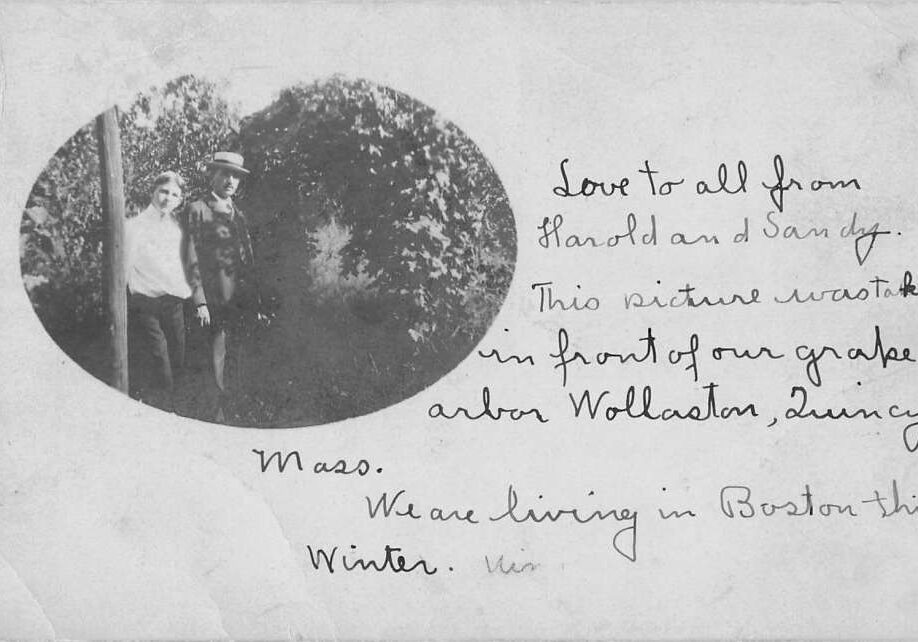 Love to all from
Harold and Sandy.
This picture was tak
in front of our grape
arbor Wollaston, Quincy
Mass.
We are living in Boston thi
Winter.